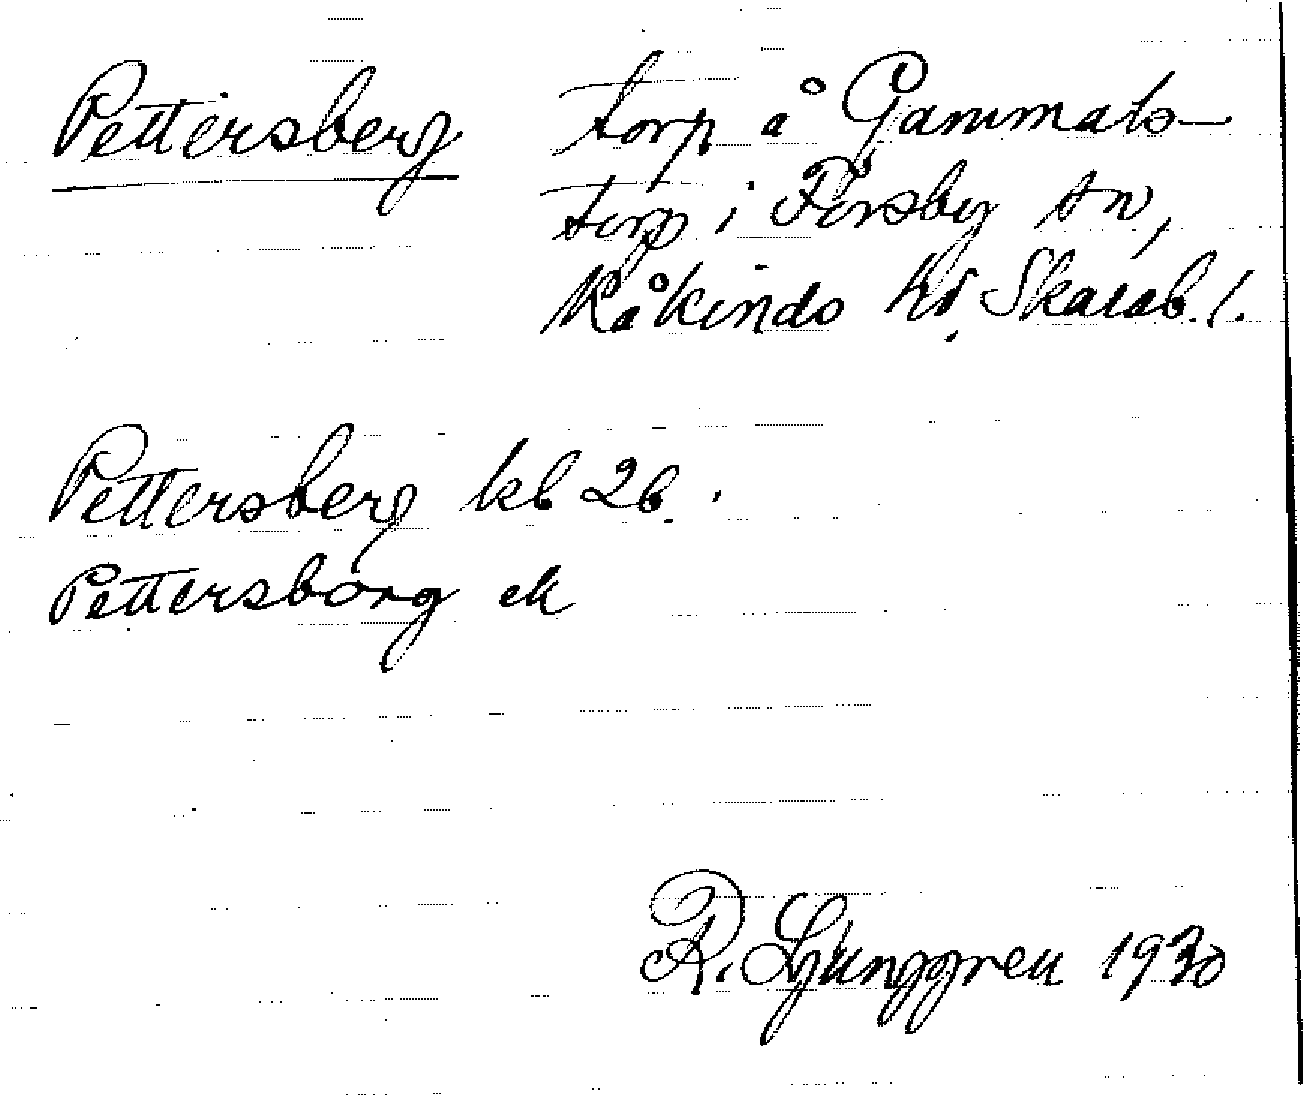 Pettersberg torp å Gammals-
torp i Forsby sn,
Kåkinds hd. Skarab. l.
Pettersberg kb 26.
Pettersborg ek
R. Ljunggren 1930